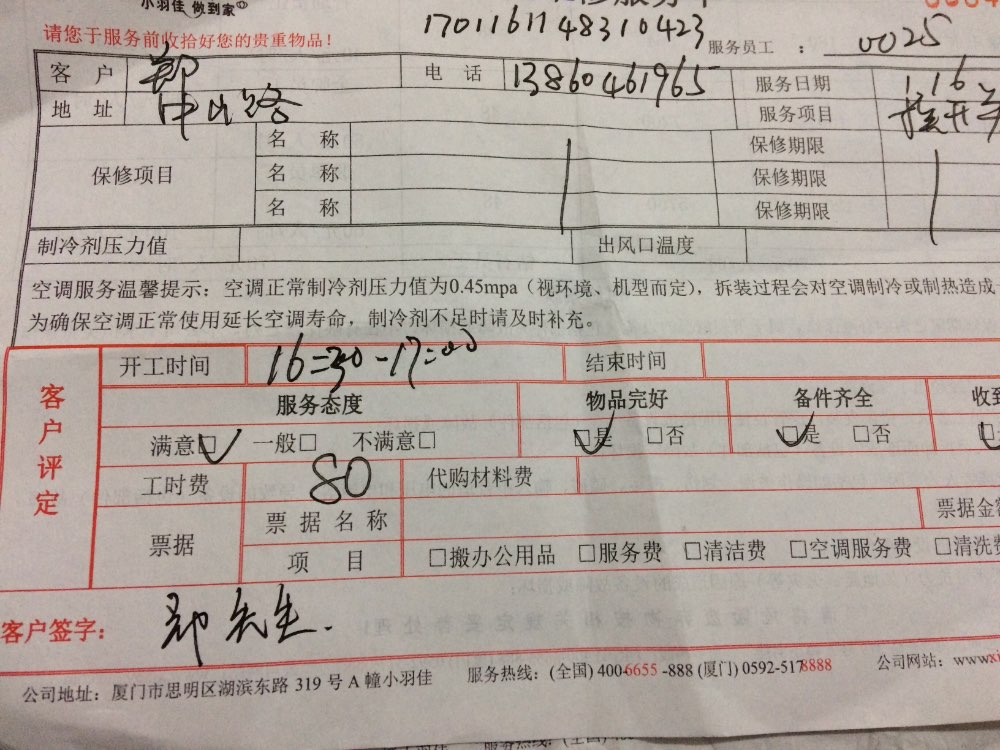 小羽佳 做到家®
请您于服务前收拾好您的贵重物品！
1701161148310423
服务员工 ： 0025
客 户 郑 电 话 13860461965 服务日期 1.16
地 址 中山路 服务项目
保修项目 名 称 保修期限
名 称 保修期限
名 称 保修期限
制冷剂压力值 出风口温度
空调服务温馨提示：空调正常制冷剂压力值为0.45mpa（视环境、机型而定），拆装过程会对空调制冷或制热造成
为确保空调正常使用延长空调寿命，制冷剂不足时请及时补充。
客户评定
开工时间 16=30-17=00 结束时间
服务态度 物品完好 备件齐全 收到
满意□ 一般□ 不满意□ □是 □否 □是 □否
工时费 80 代购材料费
票据 票据名称 票据金额
项 目 □搬办公用品 □服务费 □清洁费 □空调服务费 □清洗费
客户签字： 郑先生.
公司地址：厦门市思明区湖滨东路 319 号 A 幢小羽佳 服务热线：(全国) 400-6655 -888 (厦门) 0592-5178888 公司网站：www.xi